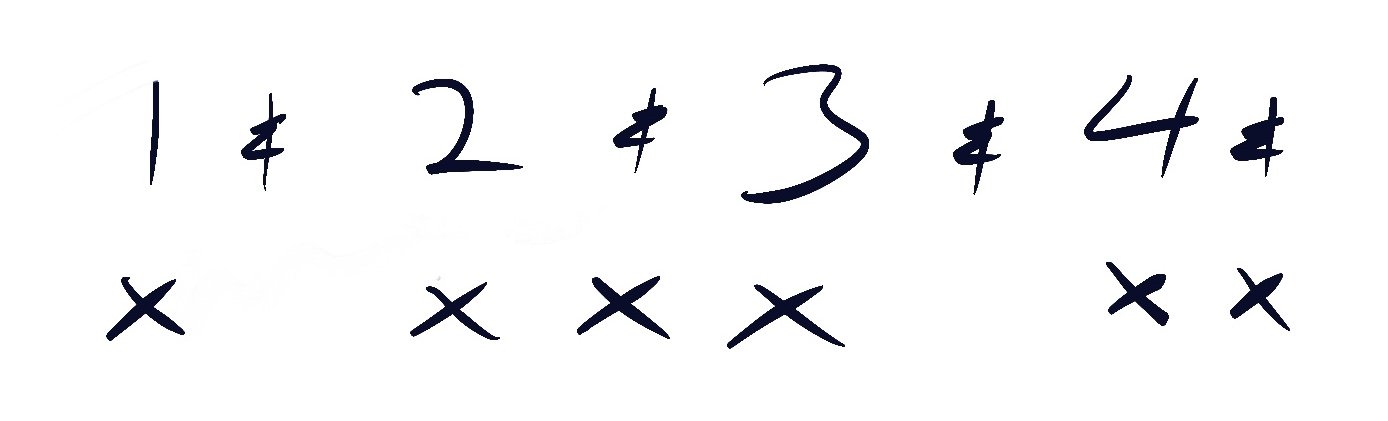 1 & 2 & 3 & 4 &
x x x x x x